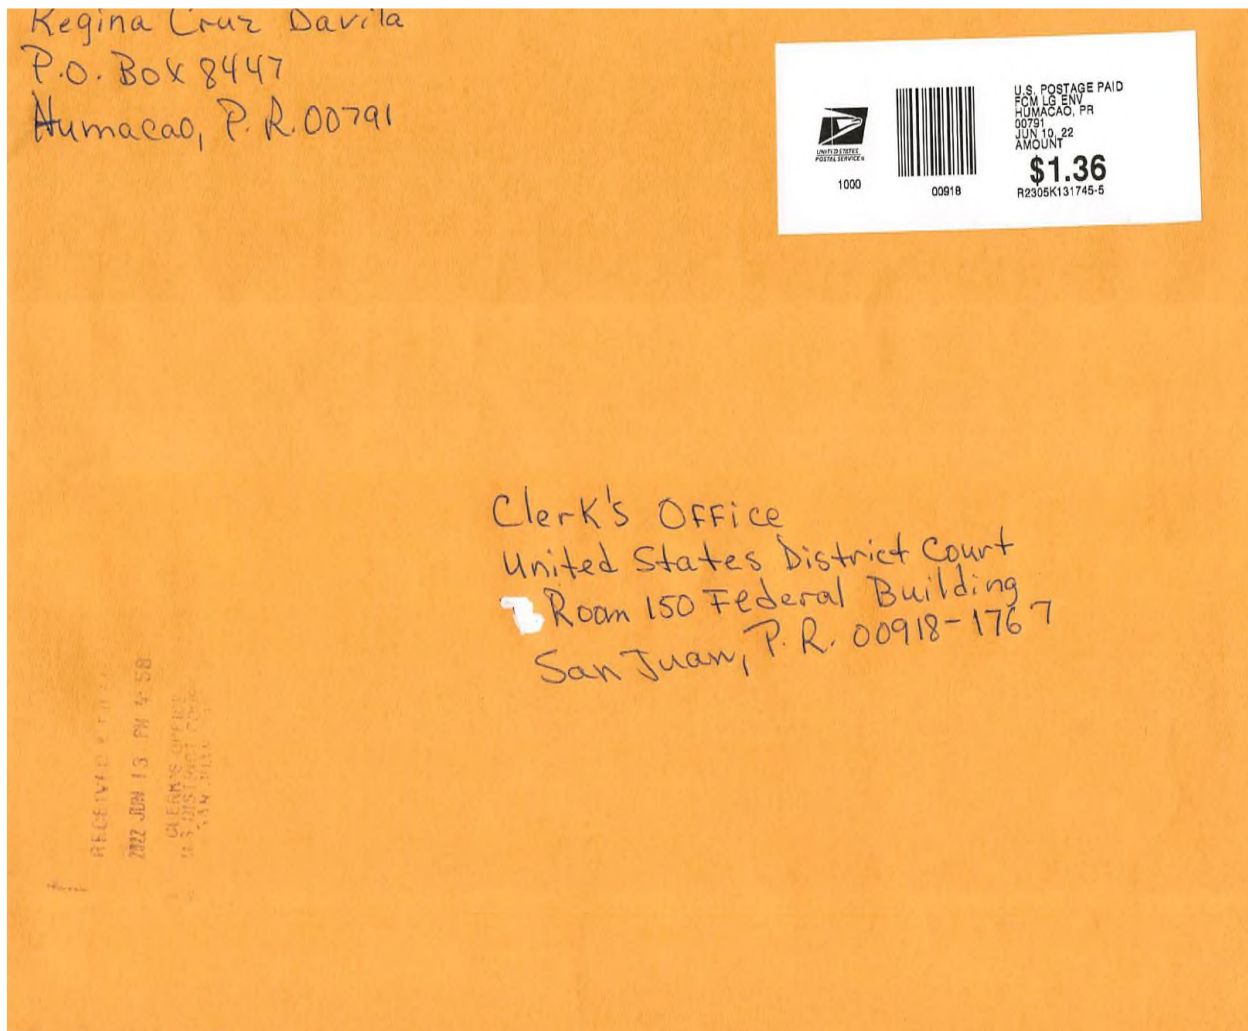 Regina Cruz Davila
P.O. Box 8447
Humacao, P.R. 00791
UNITED STATES
POSTAL SERVICE®
1000
00918
U.S. POSTAGE PAID
FCM LG ENV
HUMACAO, PR
00791
JUN 10, 22
AMOUNT
$1.36
R2305K131745-5
Clerk's Office
United States District Court
Room 150 Federal Building
San Juan, P.R. 00918-1767
RECEIVED
2022 JUN 13 PM 4:58
CLERK'S OFFICE
U.S. DISTRICT COURT
SAN JUAN